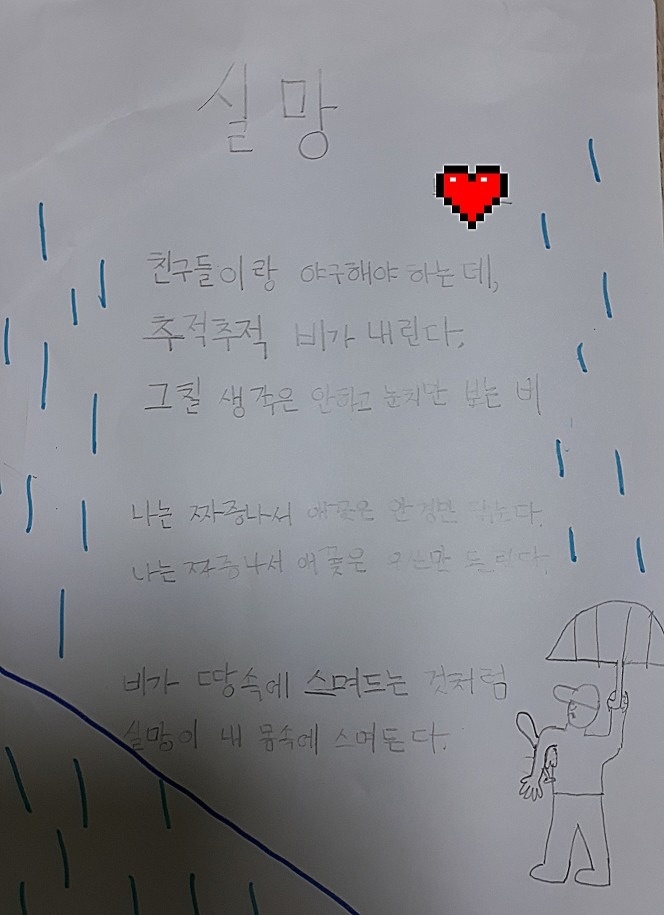 실망
친구들이랑 야구해야 하는데,
추적추적 비가 내린다.
그칠 생각은 안하고 눈치만 보는 비
나는 짜증나서 애꿎은 안경만 닦는다.
나는 짜증나서 애꿎은 우산만 돌린다.
비가 땅속에 스며드는 것처럼
실망이 내 몸속에 스며든다.